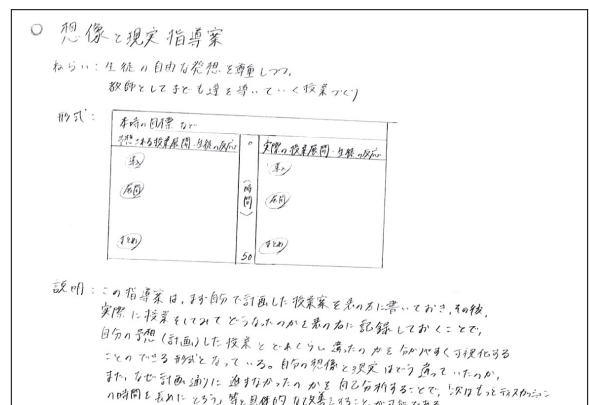 ○ 想像と現実指導案
ねらい：生徒の自由な発想を尊重しつつ、
教師として子ども達を導いていく授業づくり
形式：
本時の目標 など
予想される授業展開・生徒の反応
0
実際の授業展開・生徒の反応
導入
導入
展開
(時間)
展開
まとめ
まとめ
50
説明：この指導案は、まず自分で計画した授業案を表の左に書いておき、その後、
実際に授業をしてみてどうなったのかを表の右に記録しておくことで、
自分の予想（計画）した授業とどれくらい違ったのかを分かりやすく可視化する
ことのできる形式となっている。自分の想像と現実はどう違っていたのか、
また、なぜ計画通りに進まなかったのかを自己分析することで、「次はもっとディスカッション
の時間を長めにとろう」等と具体的な改善しることが可能である